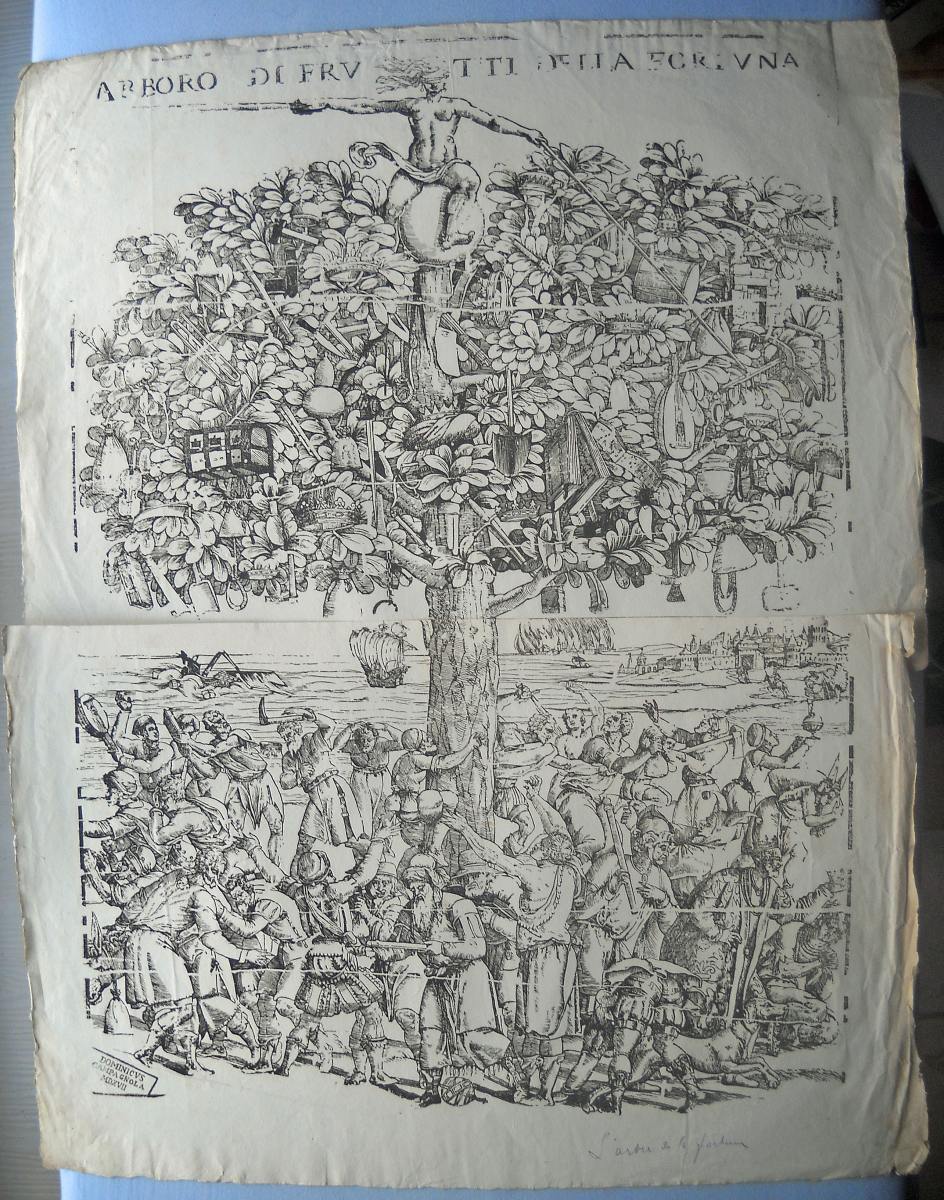 ARBORO DI FRV TTI DELLA FORTVNA
DOMINICVS
CAMPAGNOLA
MDXVII
L'arbre de la fortune